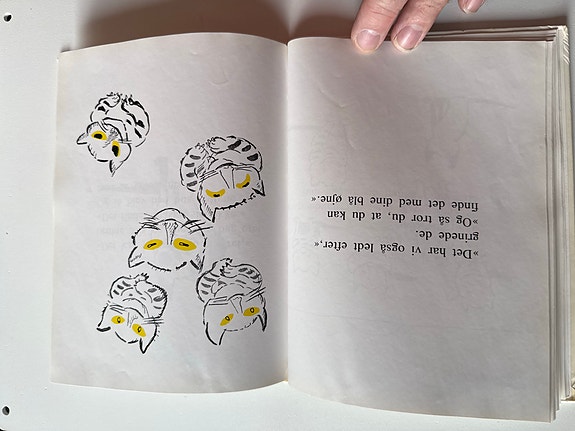 »Det har vi også ledt efter,«
grinede de.
»Og så tror du, at du kan
finde det med dine blå øjne.«